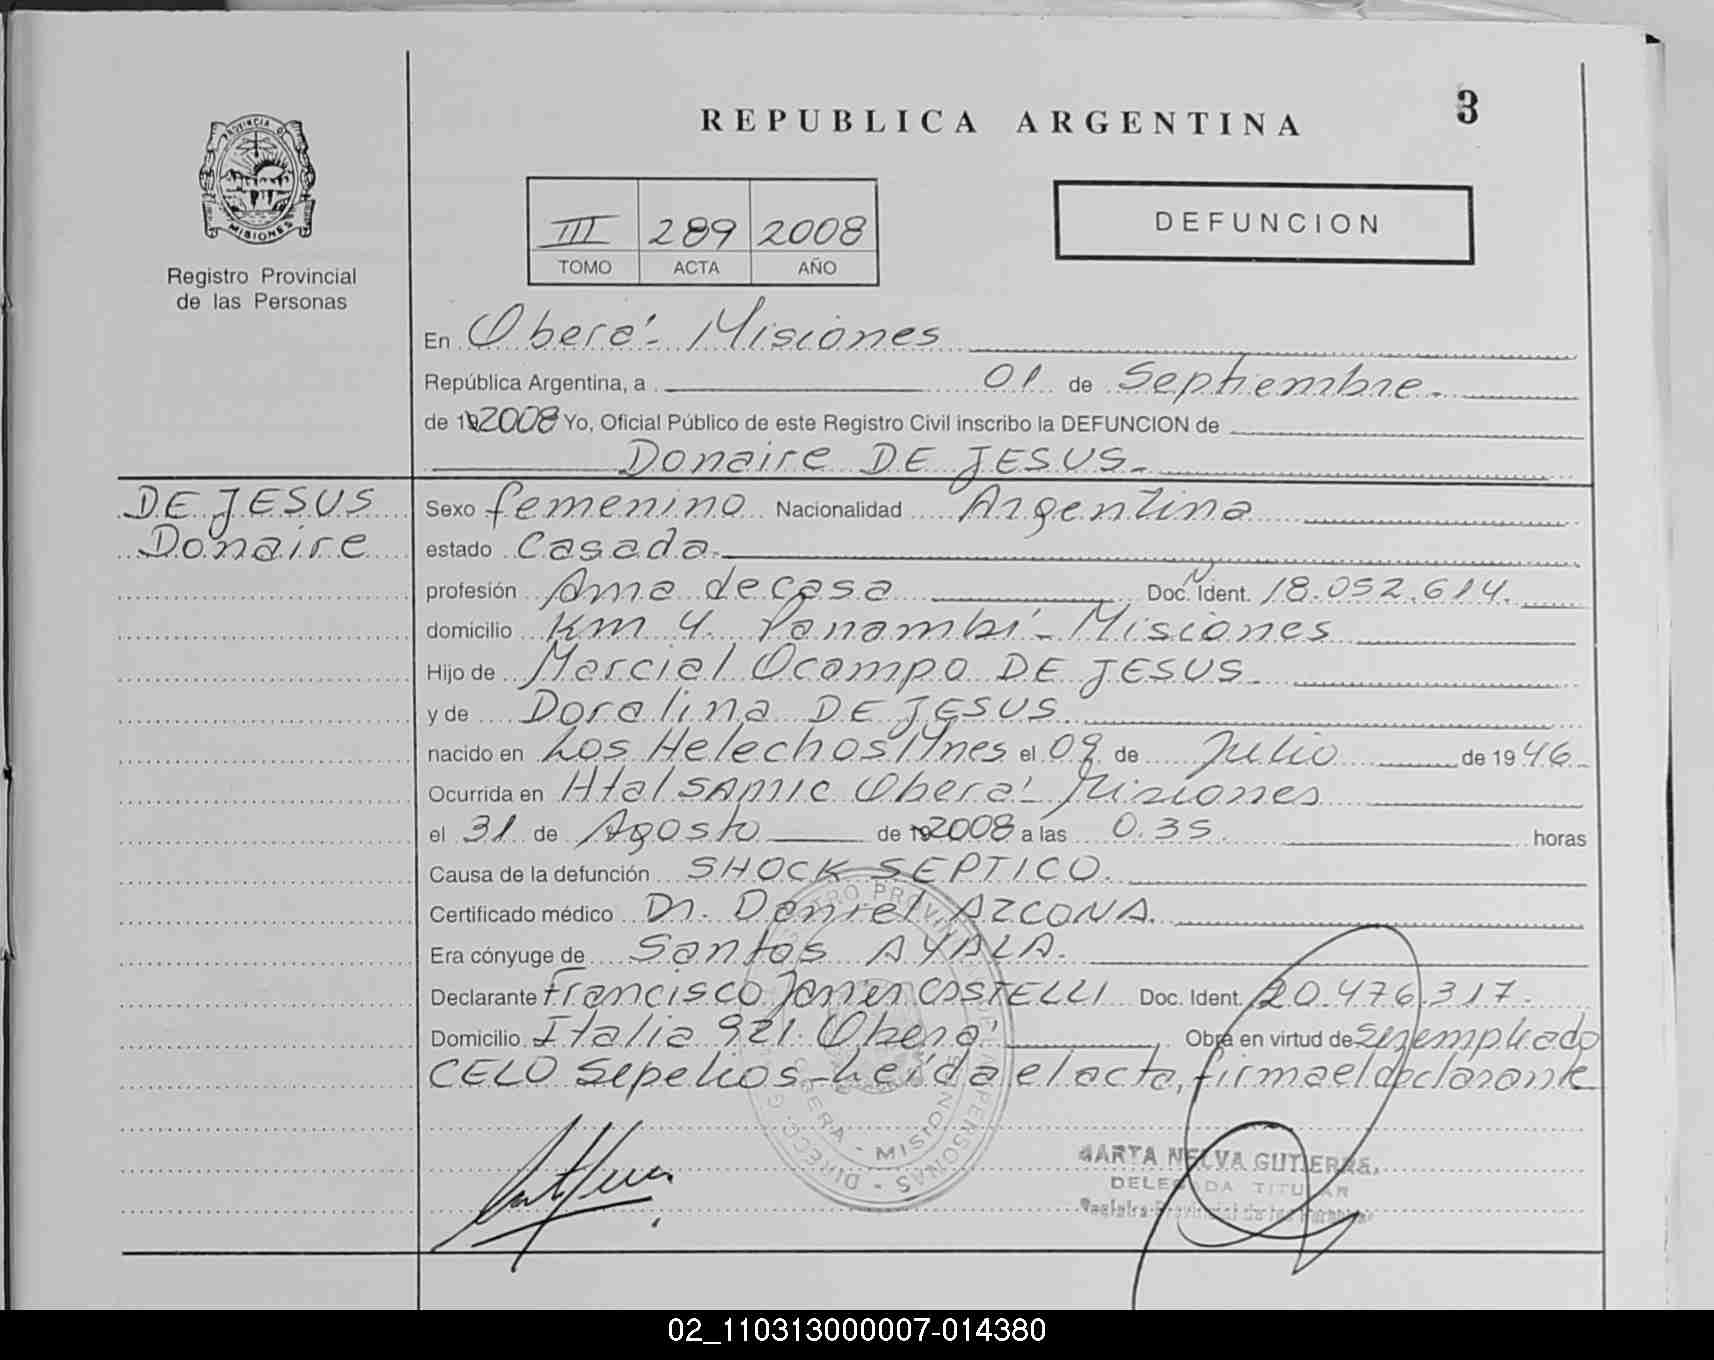 REPUBLICA ARGENTINA
3
PROVINCIA DE
MISIONES
Registro Provincial
de las Personas
III 289 2008
TOMO ACTA AÑO
DEFUNCION
En Oberá - Misiones
República Argentina, a 01 de Septiembre.
de 19 2008 Yo, Oficial Público de este Registro Civil inscribo la DEFUNCION de
Donaire DE JESUS.
DE JESUS
Donaire
Sexo femenino Nacionalidad Argentina
estado Casada.
profesión Ama de casa Doc. N Ident. 18.052.614.
domicilio Km 4. Panambí - Misiones
Hijo de Marcial Ocampo DE JESUS
y de Doralina DE JESUS
nacido en Los Helechos Mnes el 09 de Julio de 1946.
Ocurrida en Htal SAMIC Oberá - Misiones
el 31 de Agosto de 19 2008 a las 0.35. horas
Causa de la defunción SHOCK SEPTICO.
Certificado médico Dr. Daniel AZCONA.
Era cónyuge de Santos AYALA.
Declarante Francisco Javier CASTELLI Doc. Ident. 20.476.317.
Domicilio Italia 921. Oberá Obra en virtud de ser empleado
CELO Sepelios - Leída el acta, firma el declarante
OBERA - MISIONES
MARTA NELVA GUTIERRE
DELEGADA TITULAR
Registro Provincial de las Personas
02_110313000007-014380